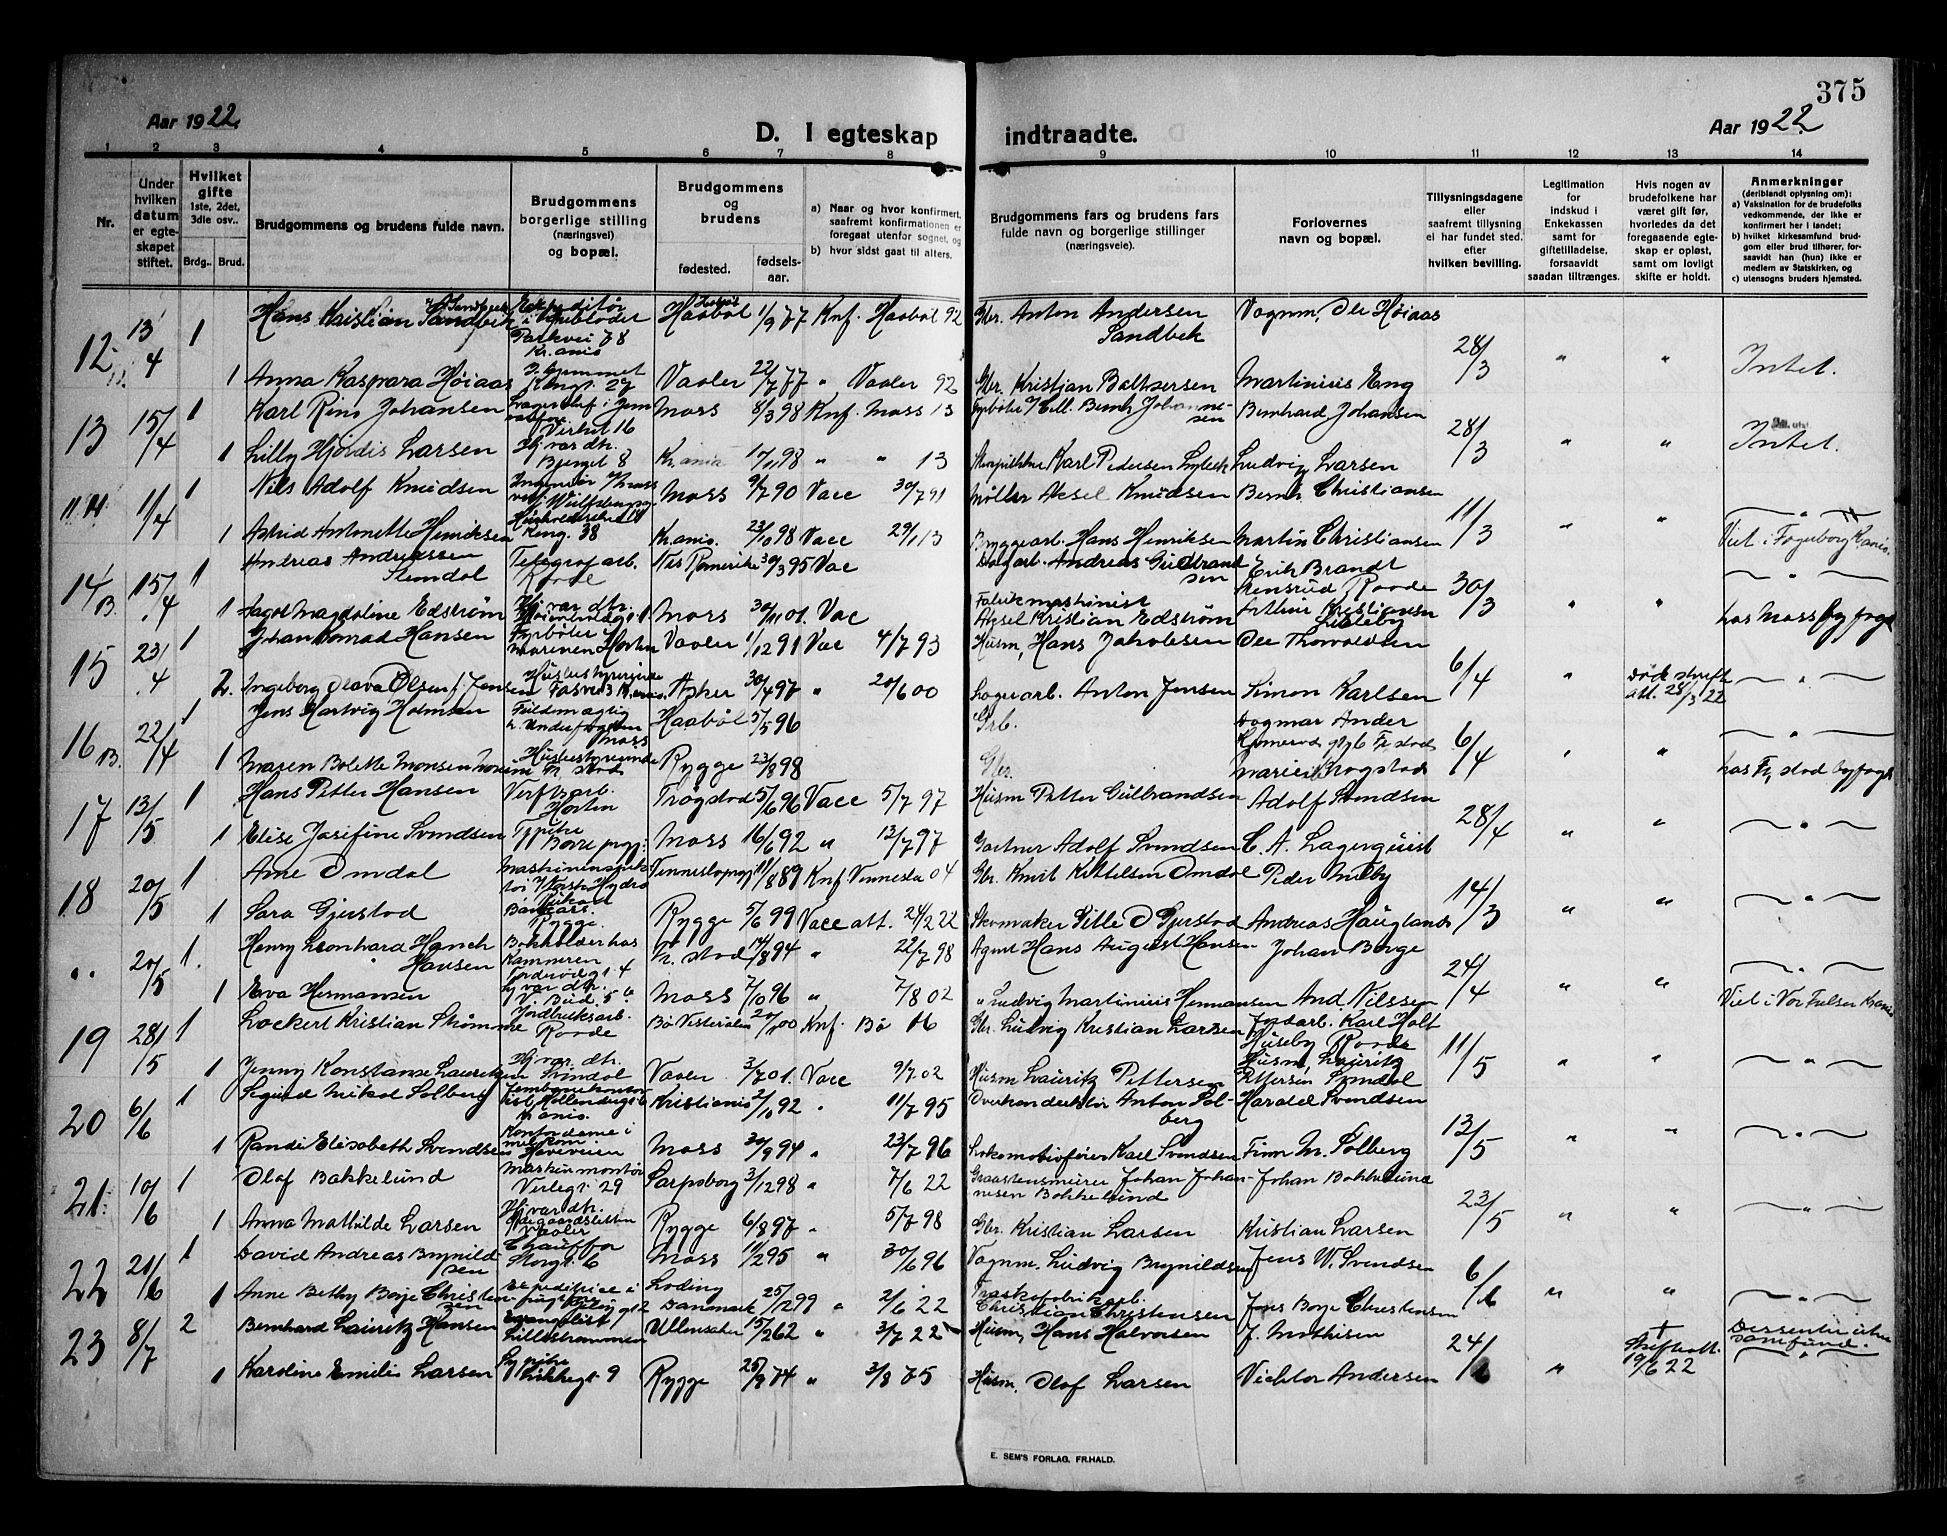 375
Aar 1922.
D. I egteskap indtraadte.
Aar 1922
1 2 3 4 5 6 7 8 9 10 11 12 13 14
Nr.
Under hvilken datum er egte-skapet stiftet.
Hvilket gifte 1ste, 2det, 3die osv..
Brdg..
Brud.
Brudgommens og brudens fulde navn.
Brudgommens borgerlige stilling (næringsvei) og bopæl.
Brudgommens og brudens
fødested.
fødsels-aar.
a) Naar og hvor konfirmert, saafremt konfirmationen er foregaat utenfor sognet, og
b) hvor sidst gaat til alters.
Brudgommens fars og brudens fars fulde navn og borgerlige stillinger (næringsveie).
Forlovernes navn og bopæl.
Tillysningsdagene eller saafremt tillysning ei har fundet sted. efter hvilken bevilling.
Legitimation for indskud i Enkekassen samt for giftetilladelse, forsaavidt saadan tiltrænges.
Hvis nogen av brudefolkene har været gift før, hvorledes da det foregaaende egte-skap er opløst, samt om lovligt skifte er holdt.
Anmerkninger (deriblandt oplysning om):
a) Vaksination for de brudefolks vedkommende, der ikke er konfirmert her i landet;
b) hvilket kirkesamfund brud-gom eller brud tilhører, for-saavidt han (hun) ikke er medlem av Statskirken, og
c) utensogns bruders hjemsted.
12 13/4 1 Hans Kristian Sandbek Haabøl 1/9 77 Knf. Haabøl 92 Gbr. Anton Andersen Sandbek Vognm. Ole Høiaas
Parkvei 78 Kr.ania
1 Anna Kaspara Høiaas Kongsgt. 27 Vaaler 22/7 77 " Vaaler 92 Gbr. Kristian Baltsersen Martinius Eng 28/3 " " Intet.
13 15/4 1 Karl Rino Johansen Moss 8/3 98 Knf. Moss 13 Bernhard Johansen
1 Lilly Hjördis Larsen Hj. var. dtr. Bjerget 8 Kr.ania 98 " " 13 Karl Pedersen Lybeck Ludvig Larsen 28/3 " " Intet.
11/4 1 Nils Adolf Knudsen Moss 9/7 90 Vacc 30/7 91 Møller Aksel Knudsen Bernh Christiansen
1 Astrid Antonette Henriksen Kong. 38 Kr.ania. 23/10 98 Vacc 29/1 13 Bryggearb. Hans Henriksen Martin Christiansen 11/3 " " Viet i Fagerborg K.ania.
14 B. 15/4 1 Andreas Andreassen Stemdal Telegrafarb. Raade Nes Romerike 30/3 95 Vac Dagarb. Andreas Gulbrandsen Erik Brandt Raade
1 Aagot Magdaline Edstrøm Hj. var. dtr. Moss 30/11 01. Vac Fabrikmaskinist Aksel Kristian Edstrøm Arthur Kristiansen 30/3 " " hos Moss byfogd
15 23/4 1 Johan Konrad Hansen Fyrbøter v/ marinen Horten Vaaler 1/12 91 Vac 4/7 93 Husm, Hans Jakobsen Ole Thorvaldsen
2. Ingeborg Olava Olsen f. Jensen Asker 30/4 97 " 20/6 00 Anton Jensen Simon Karlsen 6/4 " Død skifte att. 28/3 22 " 
16 B. 22/4 1 Jens Hartvig Holmsen Fuldmægtig Moss Haabøl 5/5 96 Gbr. Dagmar Ander
1 Maren Bolette Monsen Husbestyrerinde Fr.stad Rygge 23/8 98 Gbr. Marie Krogstad 6/4 " " hos Fr.stad byfogd
17 13/5 1 Hans Petter Hansen Verftarb. Horten Trøgstad 5/6 96 Vacc 5/7 97 Husm Petter Gulbrandsen Adolf Svendsen
1 Elise Josefine Svendsen Moss 16/6 92 " 13/7 97 Gartner Adolf Svendsen C. A. Lagerquist 28/4 " " "
18 20/5 1 Arne Omdal 11/8 89 Knf Vennesla 04 Gbr. Knut Kittelsen Omdal Peder Melby
1 Sara Gjerstad Rygge. Rygge 5/6 99 Vacc att. 24/2 22 Skomaker Gjerstad Andreas Haugland 14/3 " " "
" 20/5 1. Henry Leonhard Hansen Bokholder hos Kammeren Fr.stad 14/8 94 " 22/7 98 Agent Hans August Hansen Johan Berge
1 Eva Hermansen Hj var dtr. Moss 7/10 96 " 7/8 02 " Ludvig Martinius Hermansen And. Nilssen 24/4 " " Viet i Vor Frelser Krania
19 28/5 1 Lockert Kristian Strømme Jordbruksarb. Raade Bø Vesterålen 00 Knf. Bø 16 Gbr. Ludvig Kristian Larsen Jordarb. Karl Holt Huseby Raade
1 Jenny Konstanse Lauritzen Hj. var dtr. Vaaler 3/7 01. Vacc 9/7 02 Husm Lauritz Pettersen Husm, Lauritz Pettersen 11/5 " " "
20 6/6 1 Sigurd Mikal Solberg Kr.ania. Kristiania 2/10 92 " 11/7 95 Overkonduktør Anton Solberg Harald Svendsen
1 Randi Elisabeth Svendsen Kontordame i Moss 30/9 94 " 23/7 96 Lokomotivfører Karl Svendsen Finn M. Solberg 13/5 " " "
21 10/6 1 Olaf Bakkelund Maskinmontør Verlegt. 29 Sarpsborg 3/12 98 " 7/6 22 Johan Johannesen Bakkelund Johan Bakkelund
1 Anna Mathilde Larsen Hj. var dtr. Vaaler Rygge 6/8 97 " 5/7 98 Gbr. Kristian Larsen Kristian Larsen 23/5 " " "
22 21/6 1 David Andreas Brynildsen Chauffør Storgt. 6 Moss 11/2 95 " 30/6 96 Vognm. Ludvig Brynildsen Jens W. Svendsen
1 Anne Bethy Borje Christensen Danmark 25/12 99 " 2/6 22 Christian Christensen Jens Borje Christensen 6/6 " " "
23 8/7 2 Bernhard Lauritz Hansen Lillestrømmen Ullensaker 15/2 62 " 3/7 22 Husm, Hans Halvorsen J. Mathisen + Skifteatt. 19/6 22 Dissenter uten samfund.
1 Karoline Emilie Larsen 9 Rygge 25/9 74 " 3/8 75 Husm. Olaf Larsen Vichtor Andersen 24/6 " "
E. SEM'S FORLAG, FR.HALD.